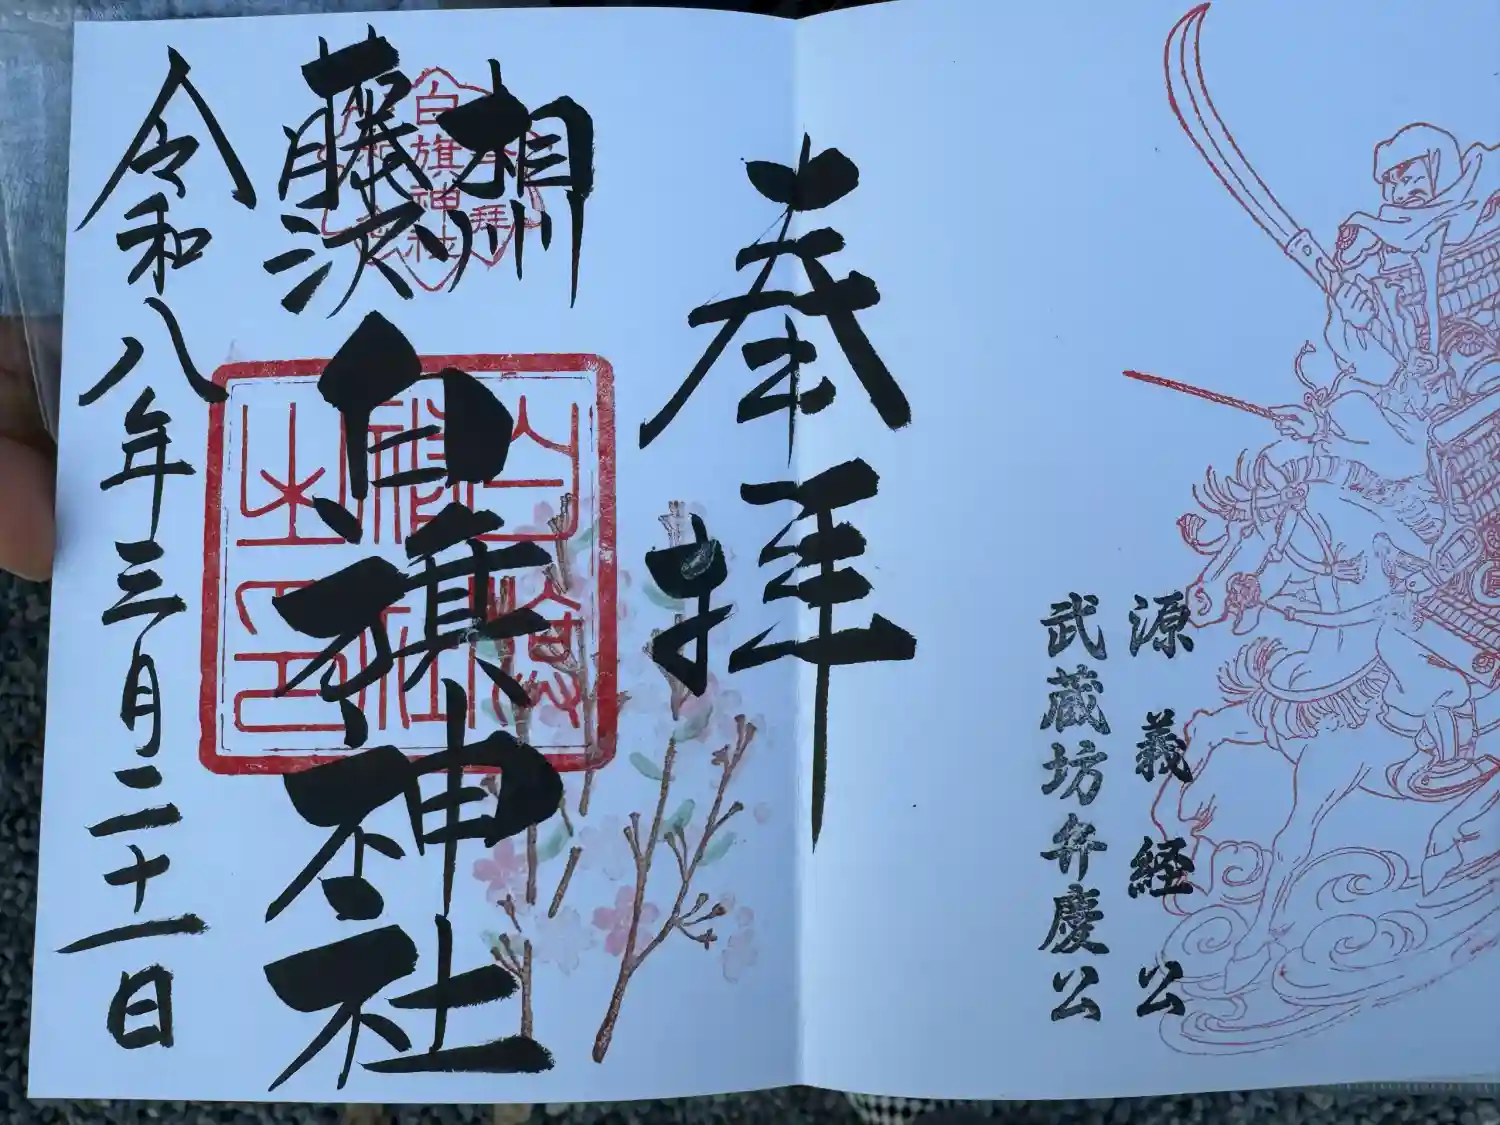 源義経公
武蔵坊弁慶公
奉拝
相州
藤沢
白旗神社
令和八年三月二十一日
白旗神社